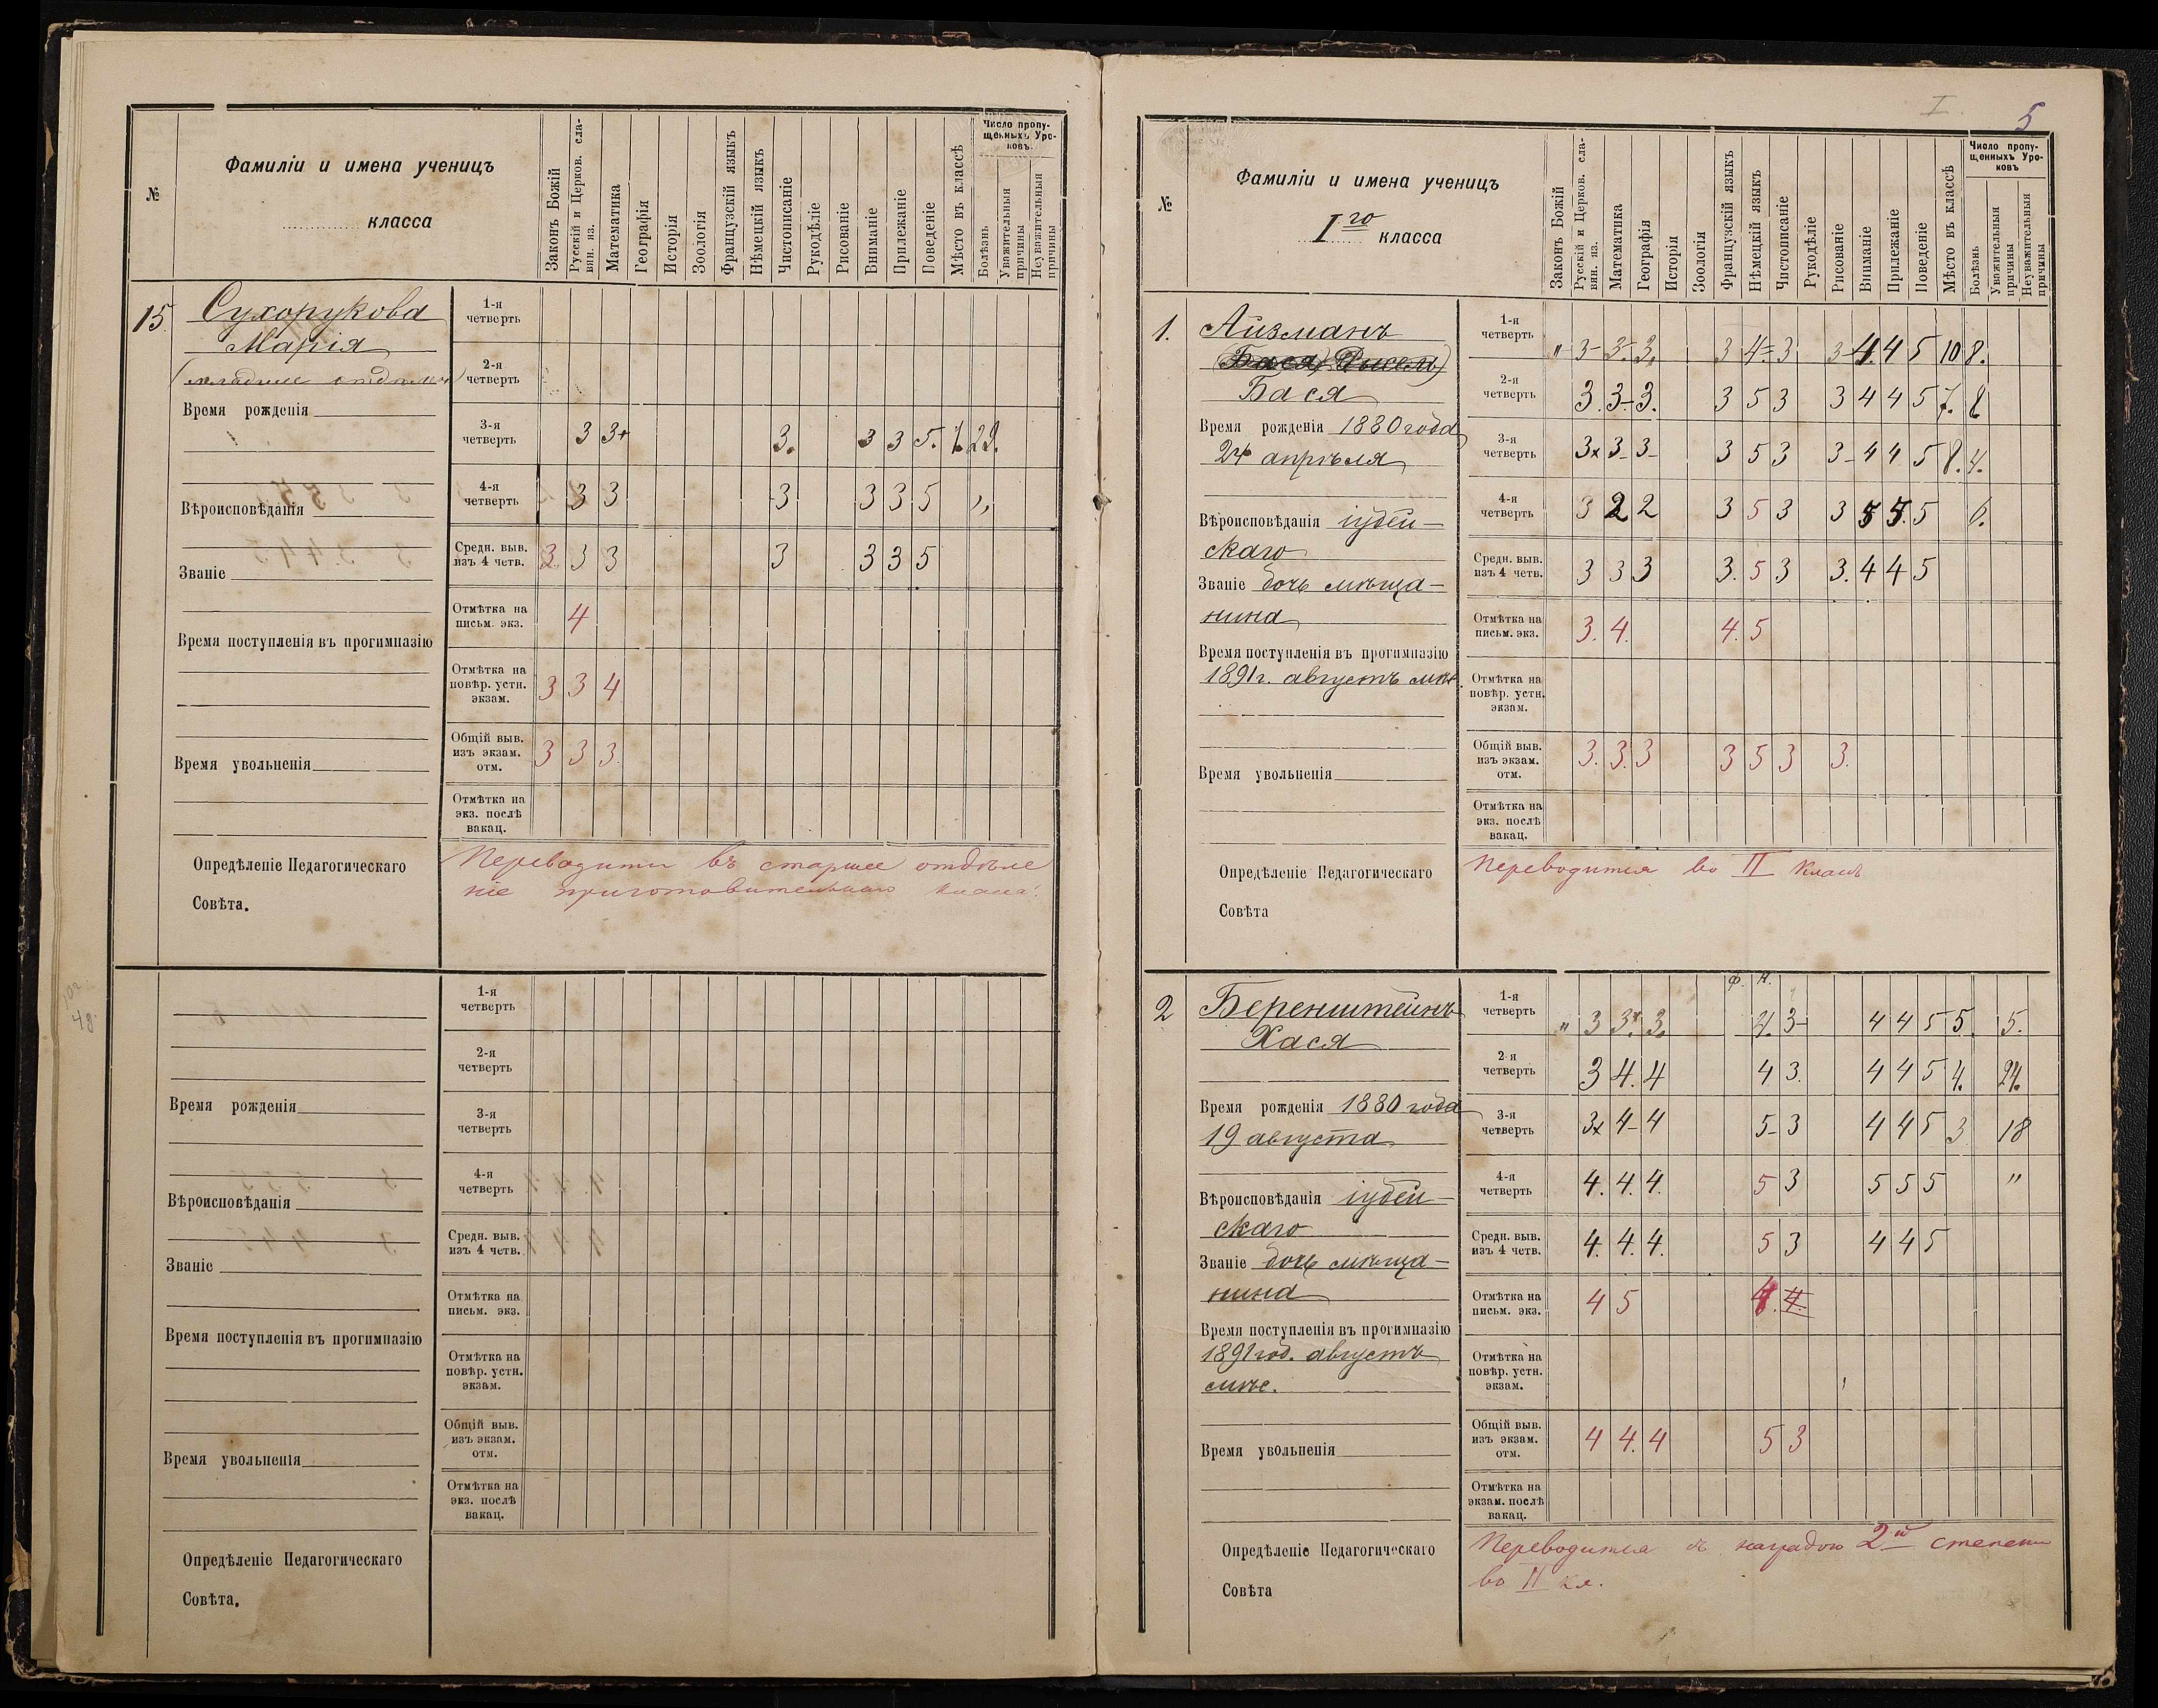 №
Фамиліи и имена ученицъ
класса
Законъ Божій
Русскій и Церков. сла-
вян. яз.
Математика
Географія
Исторія
Зоологія
Французскій языкъ
Нѣмецкій языкъ
Чистописаніе
Рукодѣліе
Рисованіе
Вниманіе
Прилежаніе
Поведеніе
Мѣсто въ классѣ
Число пропу-
щенныхъ Уро-
ковъ.
Болѣзнь
Уважительныя
причины
Неуважительныя
причины
15
Сухорукова
Марія
Время рожденія
Вѣроисповѣданія
Званіе
Время поступленія въ прогимназію
Время увольненія
1-я
четверть
2-я
четверть
3-я
четверть 3 3+ 3. 3 3 5.
4-я
четверть 3 3 3 3 3 5 „
Средн. выв.
изъ 4 четв. 3. 3 3 3 3 3 5
Отмѣтка на
письм. экз. 4
Отмѣтка на
повѣр. устн.
экзам. 3 3 4
Общій выв.
изъ экзам.
отм. 3 3 3.
Отмѣтка на
экз. послѣ
вакац.
Опредѣленіе Педагогическаго
Совѣта.
въ старшее отдѣле
ніе приготовительнаго класса.
1-я
четверть
2-я
четверть
Время рожденія
3-я
четверть
4-я
четверть
Вѣроисповѣданія
Средн. выв.
изъ 4 четв.
Званіе
Отмѣтка на
письм. экз.
Время поступленія въ прогимназію
Отмѣтка на
повѣр. устн.
экзам.
Общій выв.
изъ экзам.
отм.
Время увольненія
Отмѣтка на
экз. послѣ
вакац.
Опредѣленіе Педагогическаго
Совѣта.
I
5
№
Фамиліи и имена ученицъ
I го класса
Законъ Божій
Русскій и Церков. сла-
вян. яз.
Математика
Географія
Исторія
Зоологія
Французскій языкъ
Нѣмецкій языкъ
Чистописаніе
Рукодѣліе
Рисованіе
Вниманіе
Прилежаніе
Поведеніе
Мѣсто въ классѣ
Число пропу-
щенныхъ Уро-
ковъ
Болѣзнь
Уважительныя
причины
Неуважительныя
причины
1.
Айзманъ
Бася
Время рожденія 1880 года
24 апрѣля
Вѣроисповѣданія іудей-
скаго
Званіе дочь мѣща-
нина
Время поступленія въ прогимназію
1891 г. августъ мѣс.
Время увольненія
1-я
четверть „ 3- 3- 3. 3 4= 3 3- 4. 4 5 10 8.
2-я
четверть 3. 3- 3. 3 5 3 3 4 4 5 7. 8
3-я
четверть 3x 3- 3- 3 5 3 3- 4 4 5 8. 4.
4-я
четверть 3 2 2 3 5 3 3 5 5. 5 6.
Средн. выв.
изъ 4 четв. 3 3 3 3. 5 3 3. 4 4 5
Отмѣтка на
письм. экз. 3. 4. 4. 5
Отмѣтка на
повѣр. устн.
экзам.
Общій выв.
изъ экзам.
отм. 3. 3. 3 3 5 3 3.
Отмѣтка на
экз. послѣ
вакац.
Опредѣленіе Педагогическаго
Совѣта
Переводится во II классъ
2
Беренштейнъ
Хася
Время рожденія 1880 года
19 августа
Вѣроисповѣданія іудей-
скаго
Званіе дочь мѣща-
нина
Время поступленія въ прогимназію
1891 год. августъ
мѣс.
Время увольненія
Ф. Н.
1-я
четверть „ 3 3x. 3. 4. 3- 4 4 5 5. 5.
2-я
четверть 3 4. 4 4 3. 4 4 5 4. 24.
3-я
четверть 3x 4- 4 5- 3 4 4 5 3 18
4-я
четверть 4. 4. 4. 5 3 5 5 5 „
Средн. выв.
изъ 4 четв. 4. 4. 4. 5 3 4 4 5
Отмѣтка на
письм. экз. 4 5 4. 4.
Отмѣтка на
повѣр. устн.
экзам.
Общій выв.
изъ экзам.
отм. 4 4. 4 5 3
Отмѣтка на
экзам. послѣ
вакац.
Опредѣленіе Педагогическаго
Совѣта
Переводится съ наградою 2й степени
во II кл.